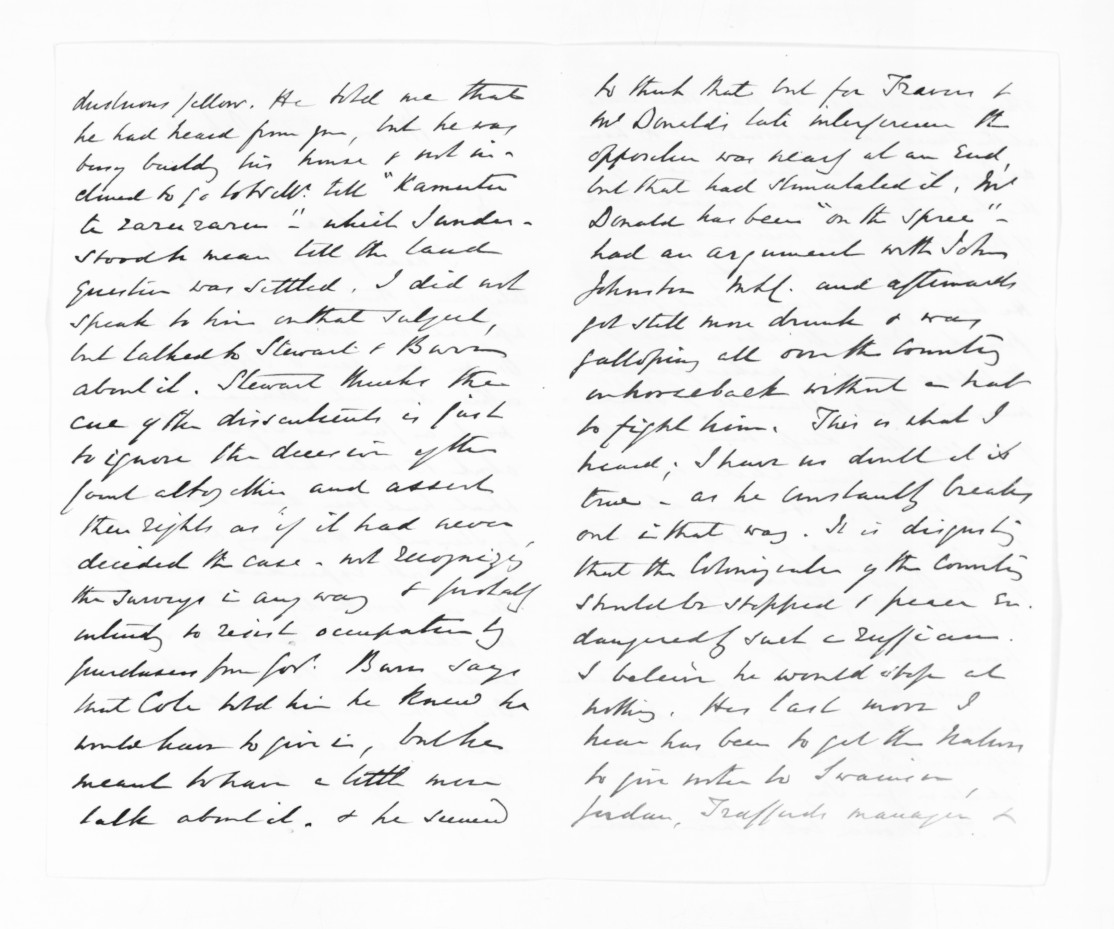 dustrious fellow. He told me that
he had heard from you, but he was
busy building his house & not in-
clined to go to till "Kamutu
te raruraru" - which I under-
stood to mean till the land
question was settled. I did not
speak to him on that subject,
but talked to Stewart & Burns
about it. Stewart thinks the
cue of the dissentients is just
to ignore the decision of the
Court altogether and assert
their rights as if it had never
decided the case - not recognizing
the surveys in any way & probably
intends to resist occupation by
purchasers from Govt. Burns says
that Cole told him he knew he
would have to give in, but he
meant to have a little more
talk about it. & he seemed
to think that but for Travers &
McDonald's late interference the
opposition was nearly at an end,
but that had stimulated it. Mc
Donald has been "on the spree" -
had an argument with John
Johnston and afterwards
got still more drunk & was
galloping all over the country
on horseback without a hat
to fight him. This is what I
heard; I have no doubt it is
true - as he constantly breaks
out in that way. It is disgusting
that the Colonization of the Country
should be stopped & peace en-
dangered by such a ruffian.
I believe he would stop at
nothing. His last move I
hear has been to get the Natives
to give notice to Swainson,
Jordan, Trafford's manager &